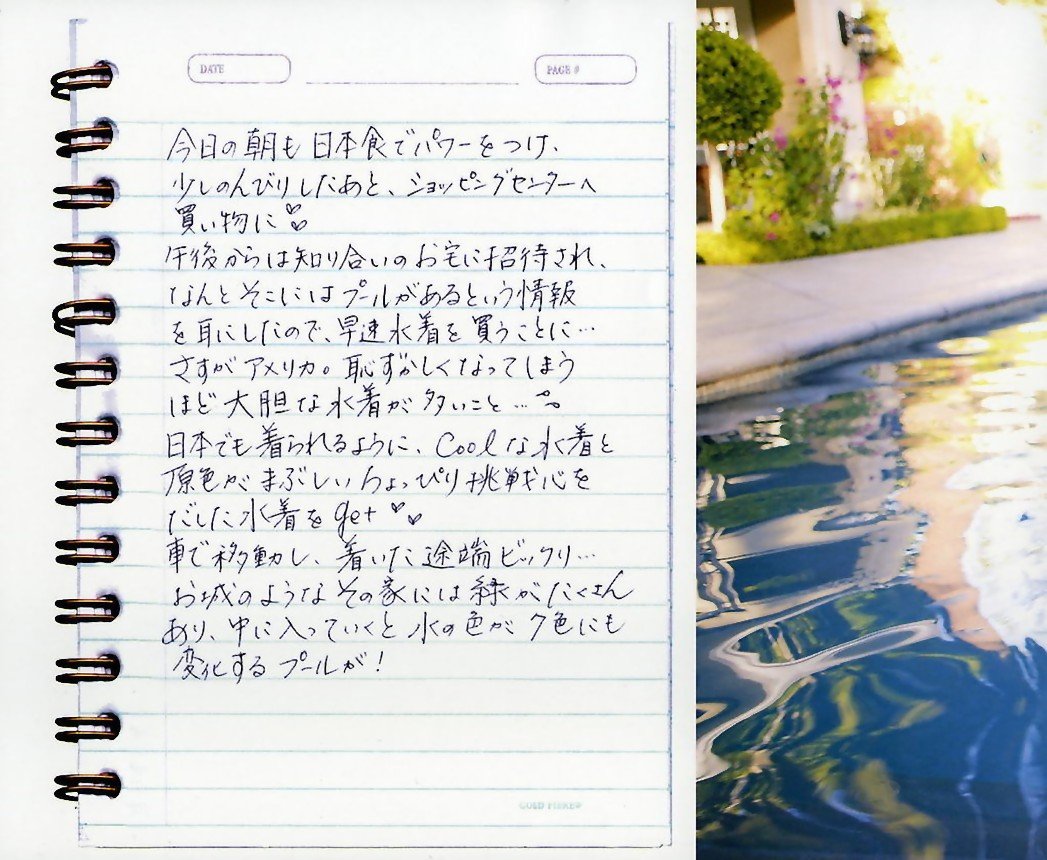 DATE
PAGE #
今日の朝も日本食でパワーをつけ、
少しのんびりしたあと、ショッピングセンターへ
買い物に♡
午後からは知り合いのお宅に招待され、
なんとそこにはプールがあるという情報
を耳にしたので、早速水着を買うことに…
さすがアメリカ。恥ずかしくなってしまう
ほど大胆な水着が多いこと…
日本でも着られるように、Coolな水着と
原色がまぶしいちょっぴり挑戦心を
だした水着をget♡
車で移動し、着いた途端ビックリ…
お城のようなその家には緑がたくさん
あり、中に入っていくと水の色が7色にも
変化するプールが!